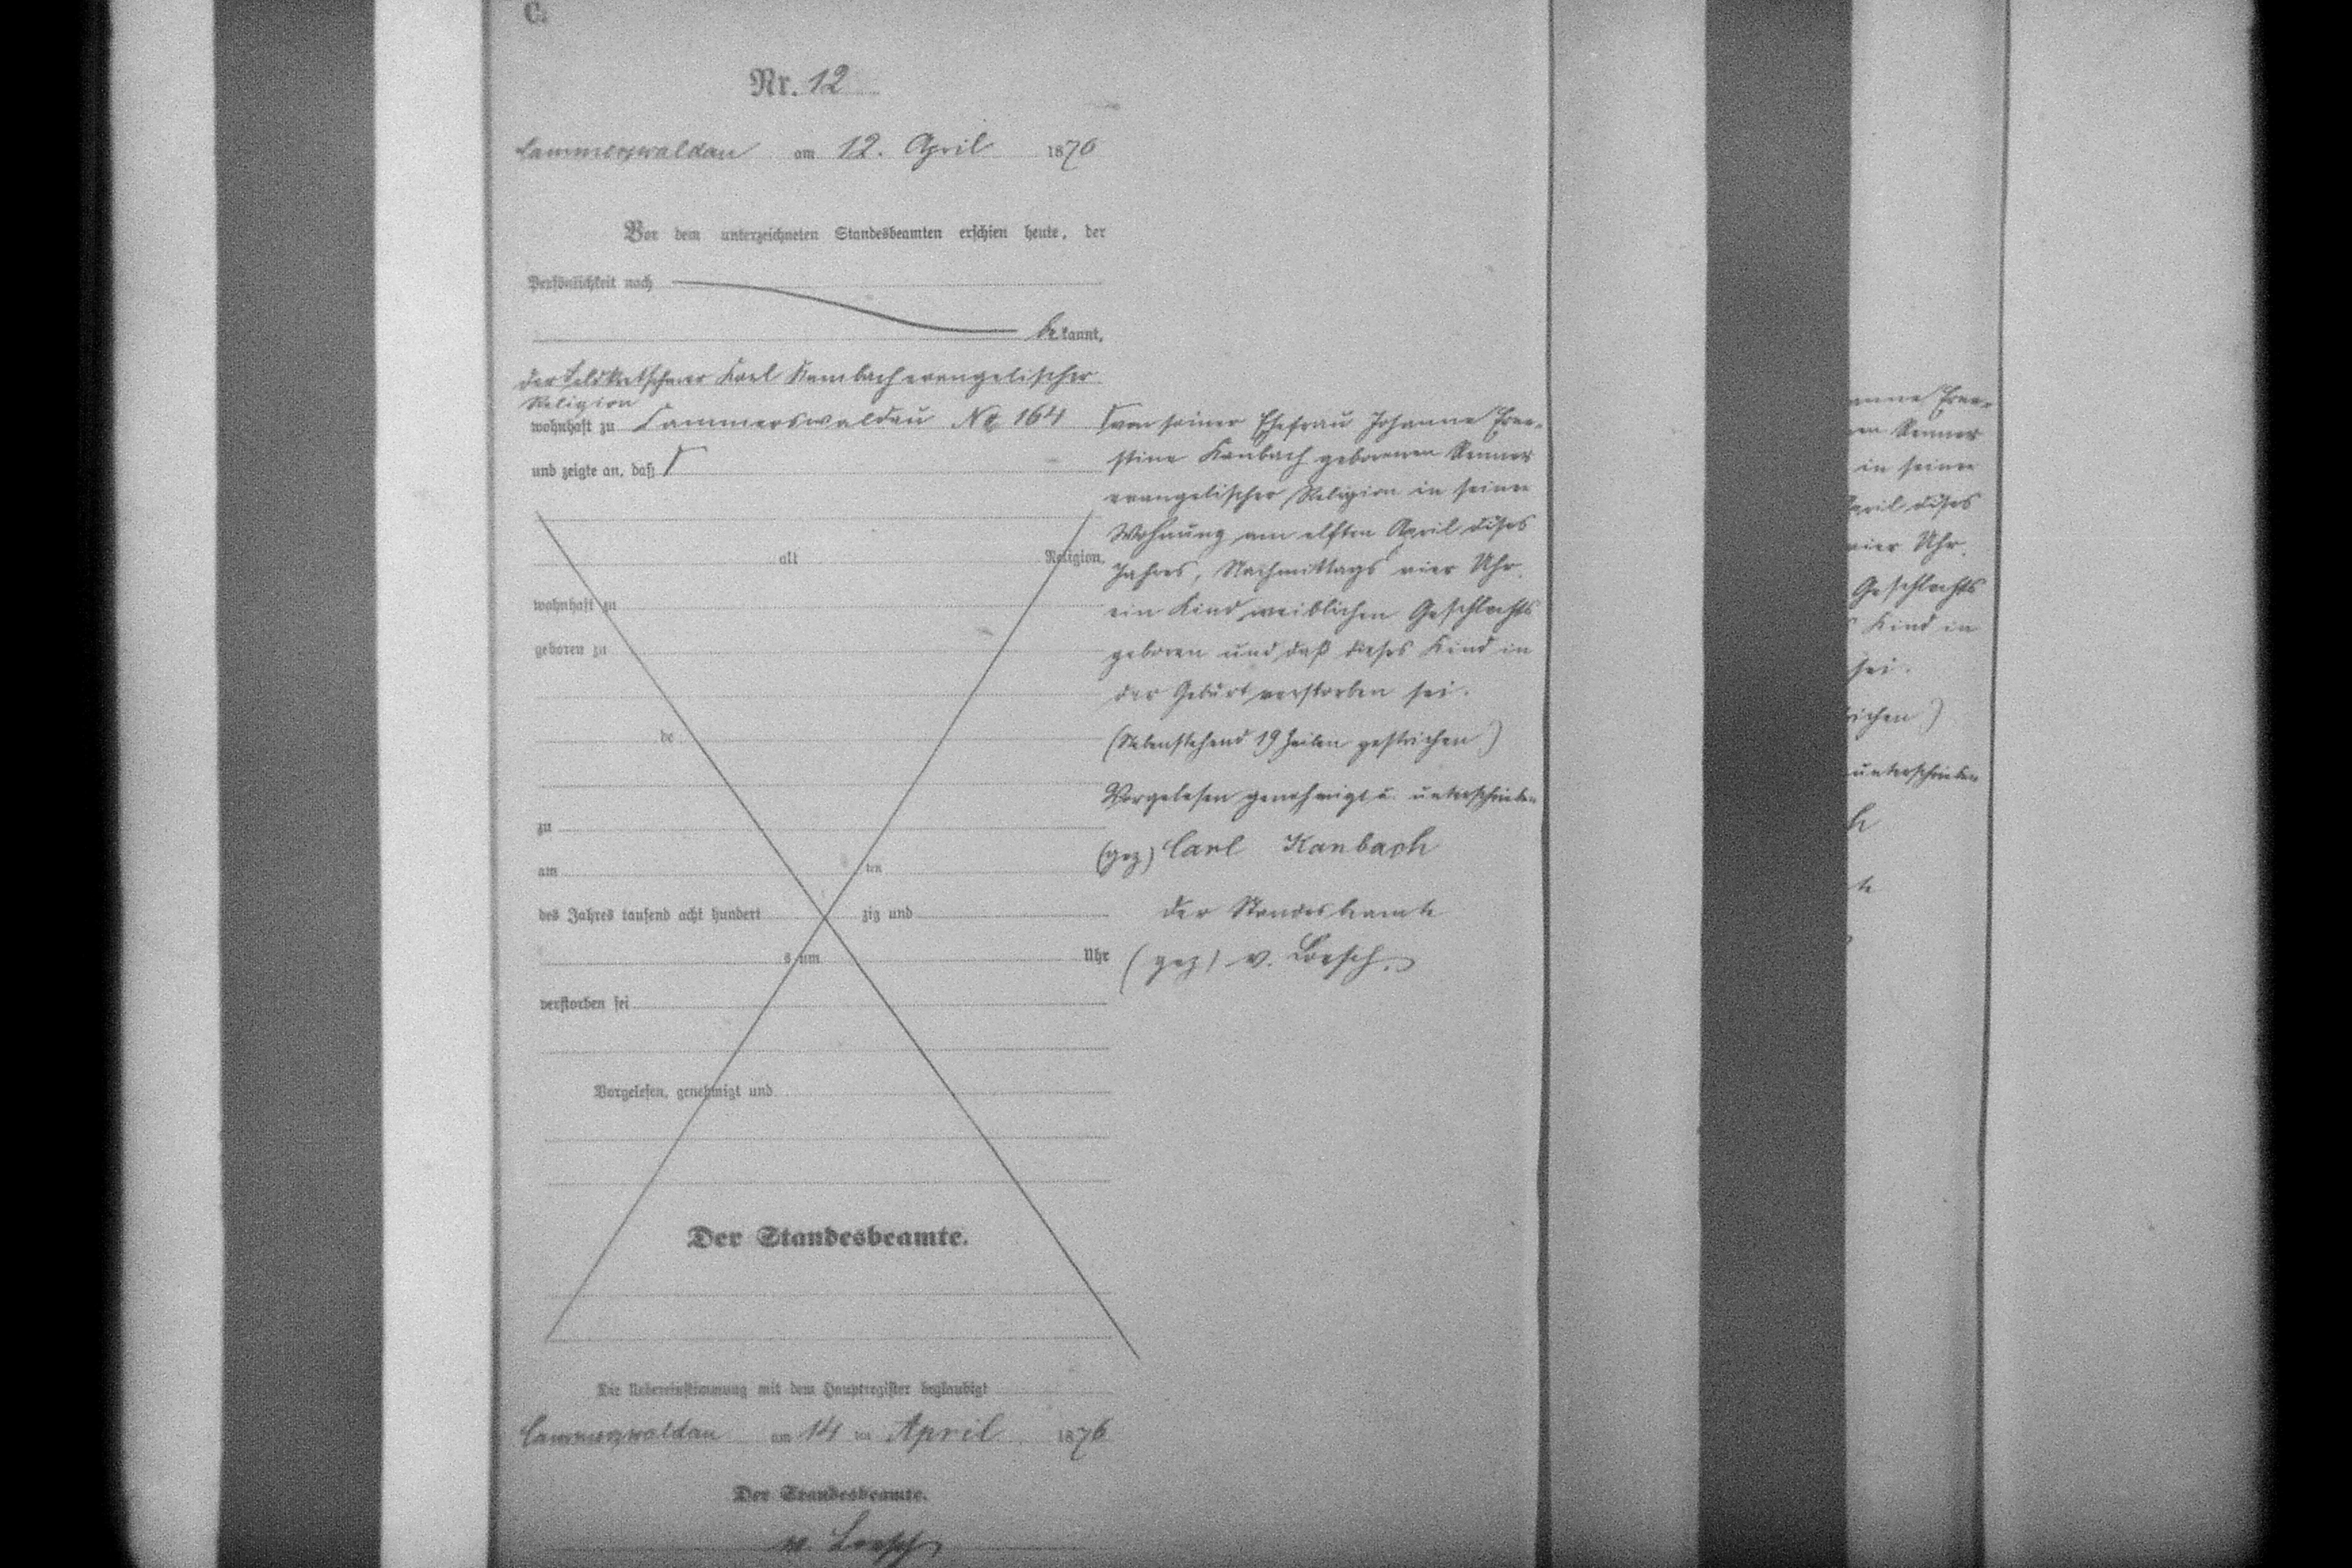 C.
Nr. 12
Cammerswaldau am 12. April 1876
Vor dem unterzeichneten Standesbeamten erschien heute, der
Persönlichkeit nach
be kannt,
der Feldkretschmer Karl Kambach evangelischer
Religion
wohnhaft zu Cammerswaldau No 164
und zeigte an, daß
alt Religion,
wohnhaft zu
geboren zu
de
zu
am ten
des Jahres tausend acht hundert zig und
s um Uhr
verstorben sei
Vorgelesen, genehmigt und
Der Standesbeamte.
von seiner Ehefrau Johanne Erne-
stine Kanbach geborenen Renner
evangelischer Religion in seiner
Wohnung am elften April dises
Jahres, Nachmittags vier Uhr.
ein Kind weiblichen Geschlechts
geboren und daß dieses Kind in
der Geburt verstorben sei.
(Nebenstehend 19 Zeilen gestrichen)
Vorgelesen genehmigt u. unterschrieben
(gez) Carl Kanbach
der Standesbeamte
(gez) v. Loesch.
Die Uebereinstimmung mit dem Hauptregister beglaubigt
Cammerswaldau am 14 ten April 1876
Der Standesbeamte.
v. Loesch
anne Erne-
en Renner
in seiner
April dises
vier Uhr.
Geschlechts
Kind in
sei.
ichen)
unterschrieben
h
te